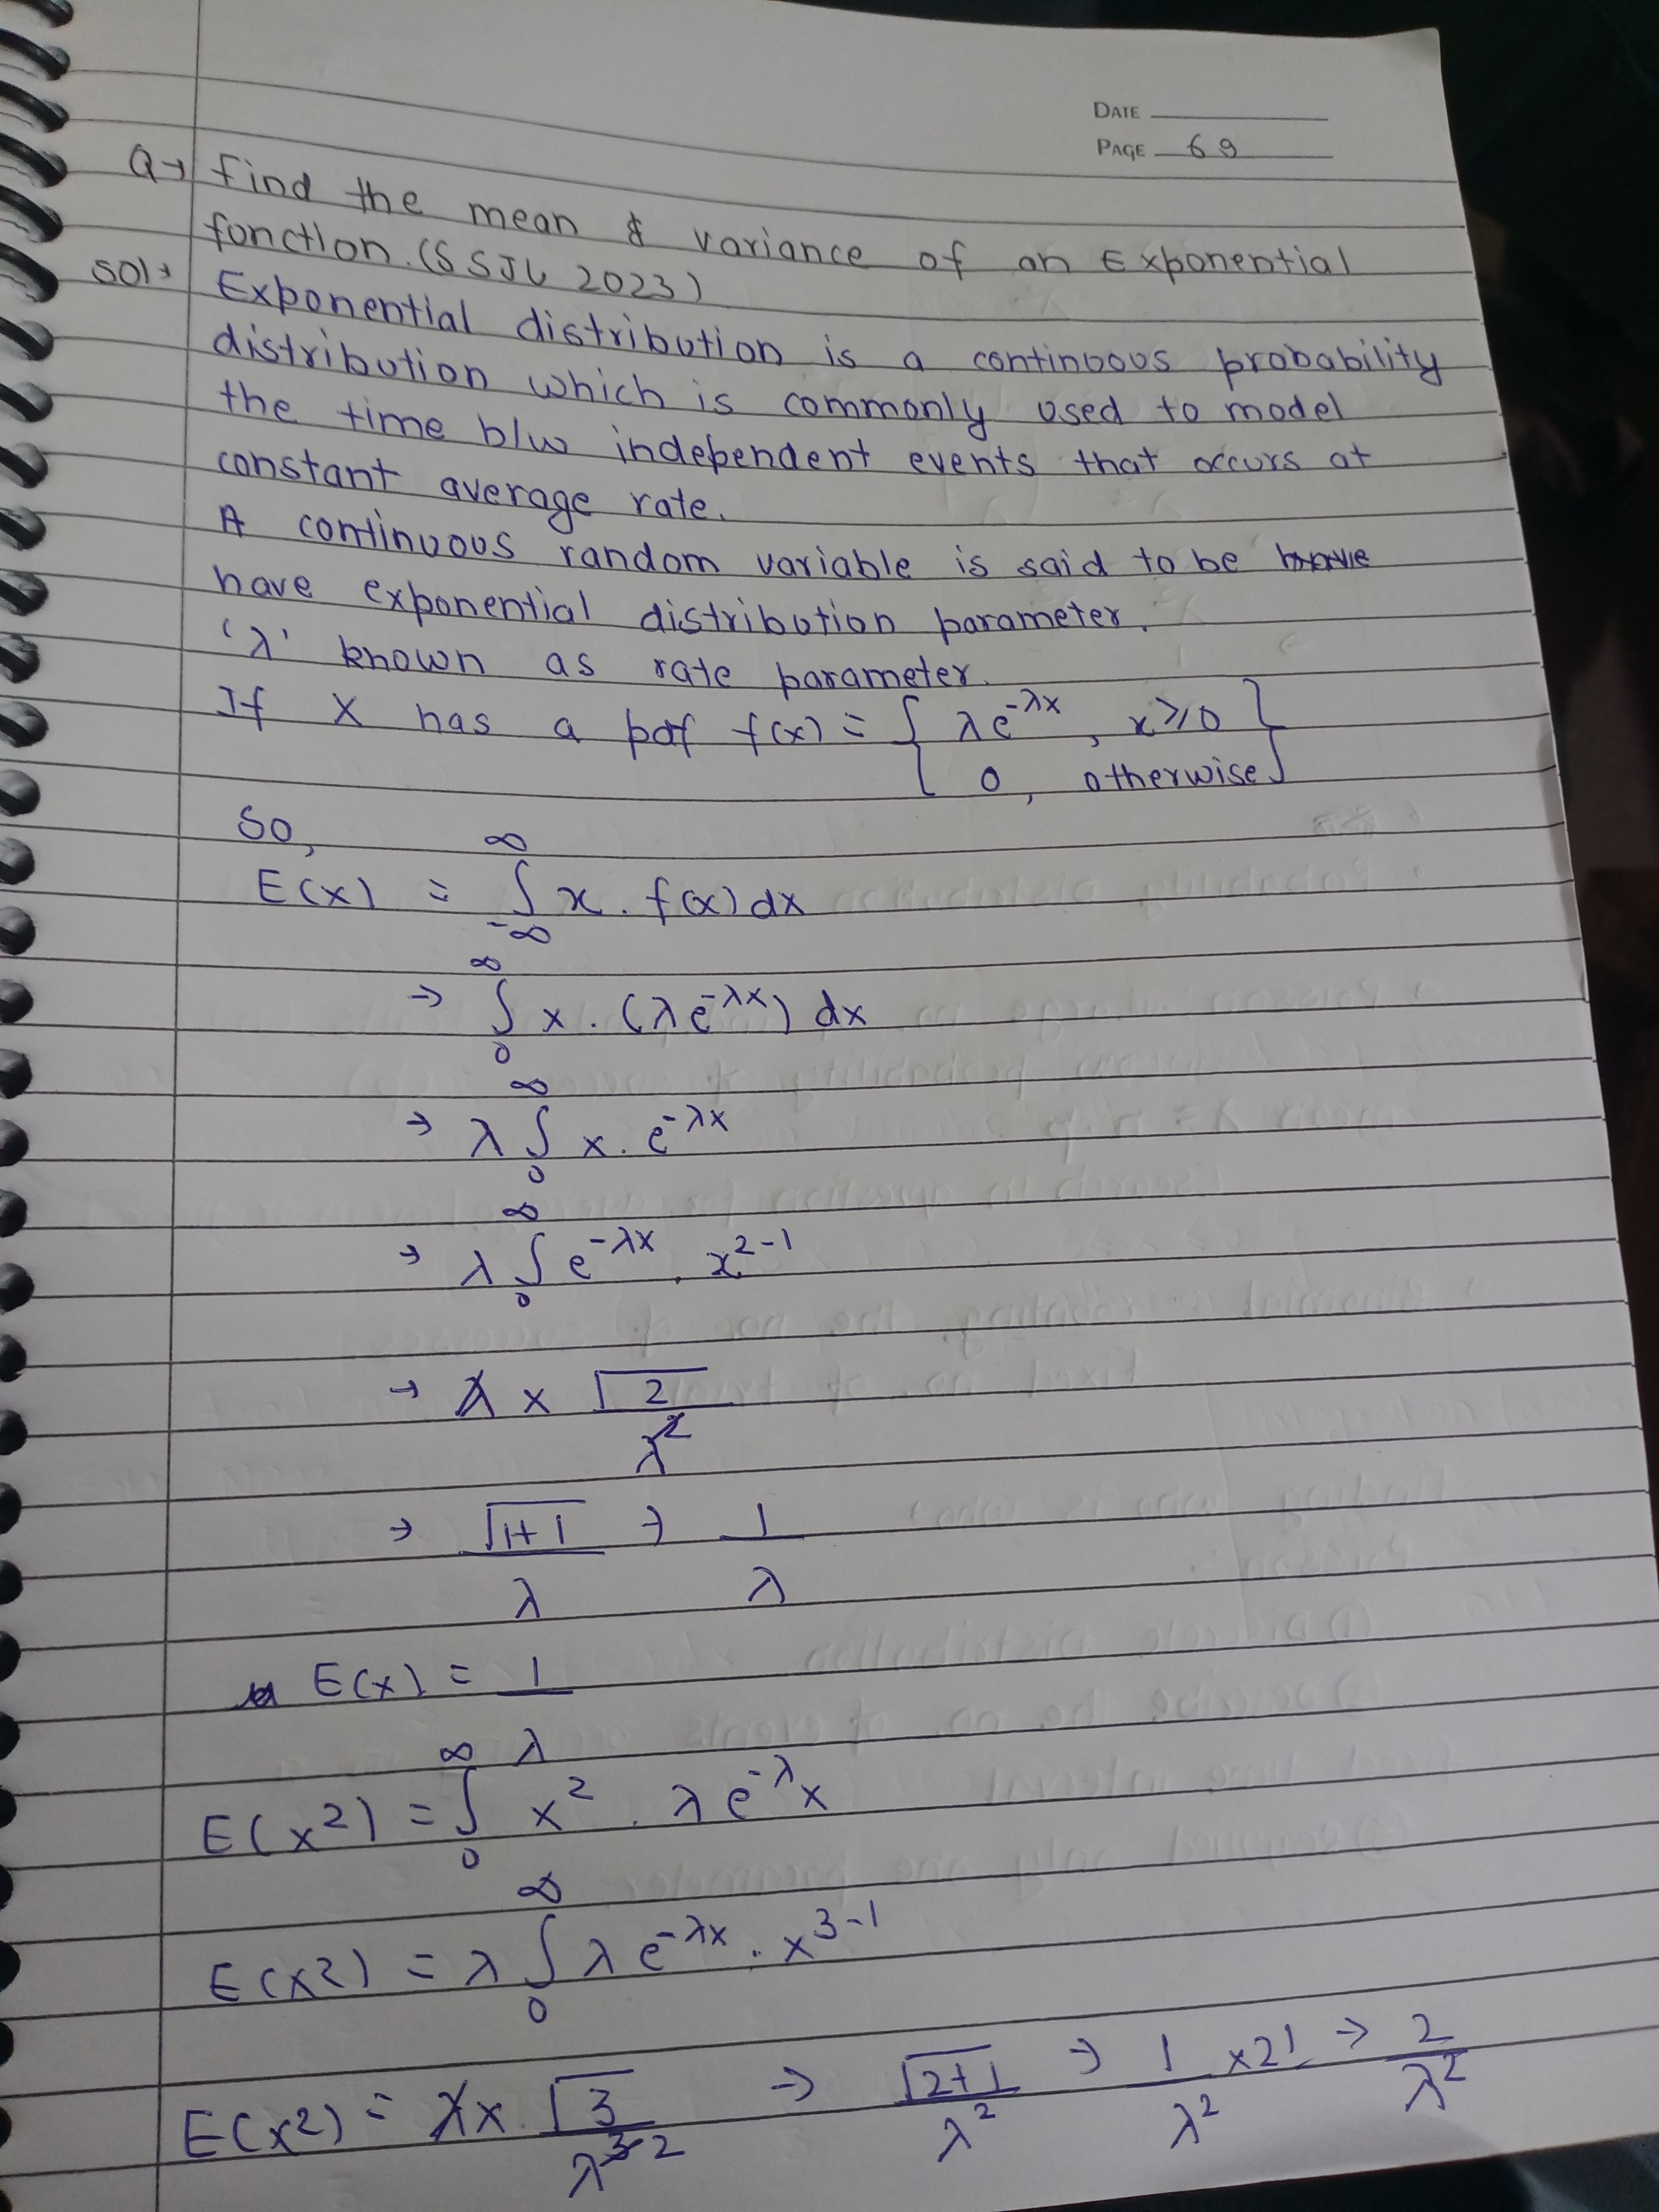 DATE
PAGE 69
Q→ find the mean & variance of an Exponential
function. (SSJU 2023)
Sol→ Exponential distribution is a continuous probability
distribution which is commonly used to model
the time b/w independent events that occurs at
constant average rate.
A continuous random variable is said to be
have exponential distribution parameter.
'λ' known as rate parameter.
If X has a pdf f(x) = { λe^-λx, x≥0
0, otherwise }
So,
E(x) = ∫_-∞^∞ x . f(x) dx
→ ∫_0^∞ x . (λe^-λx) dx
→ λ ∫_0^∞ x . e^-λx
→ λ ∫_0^∞ e^-λx . x^2-1
→ λ × √2 / λ^2
→ √1+1 / λ → 1 / λ
E(x) = 1 / λ
E(x^2) = ∫_0^∞ x^2 . λ e^-λ x
E(x^2) = λ ∫_0^∞ λ e^-λx . x^3-1
E(x^2) = λ × . √3 / λ^3 2 → √2+1 / λ^2 → 1 / λ^2 × 2! → 2 / λ^2